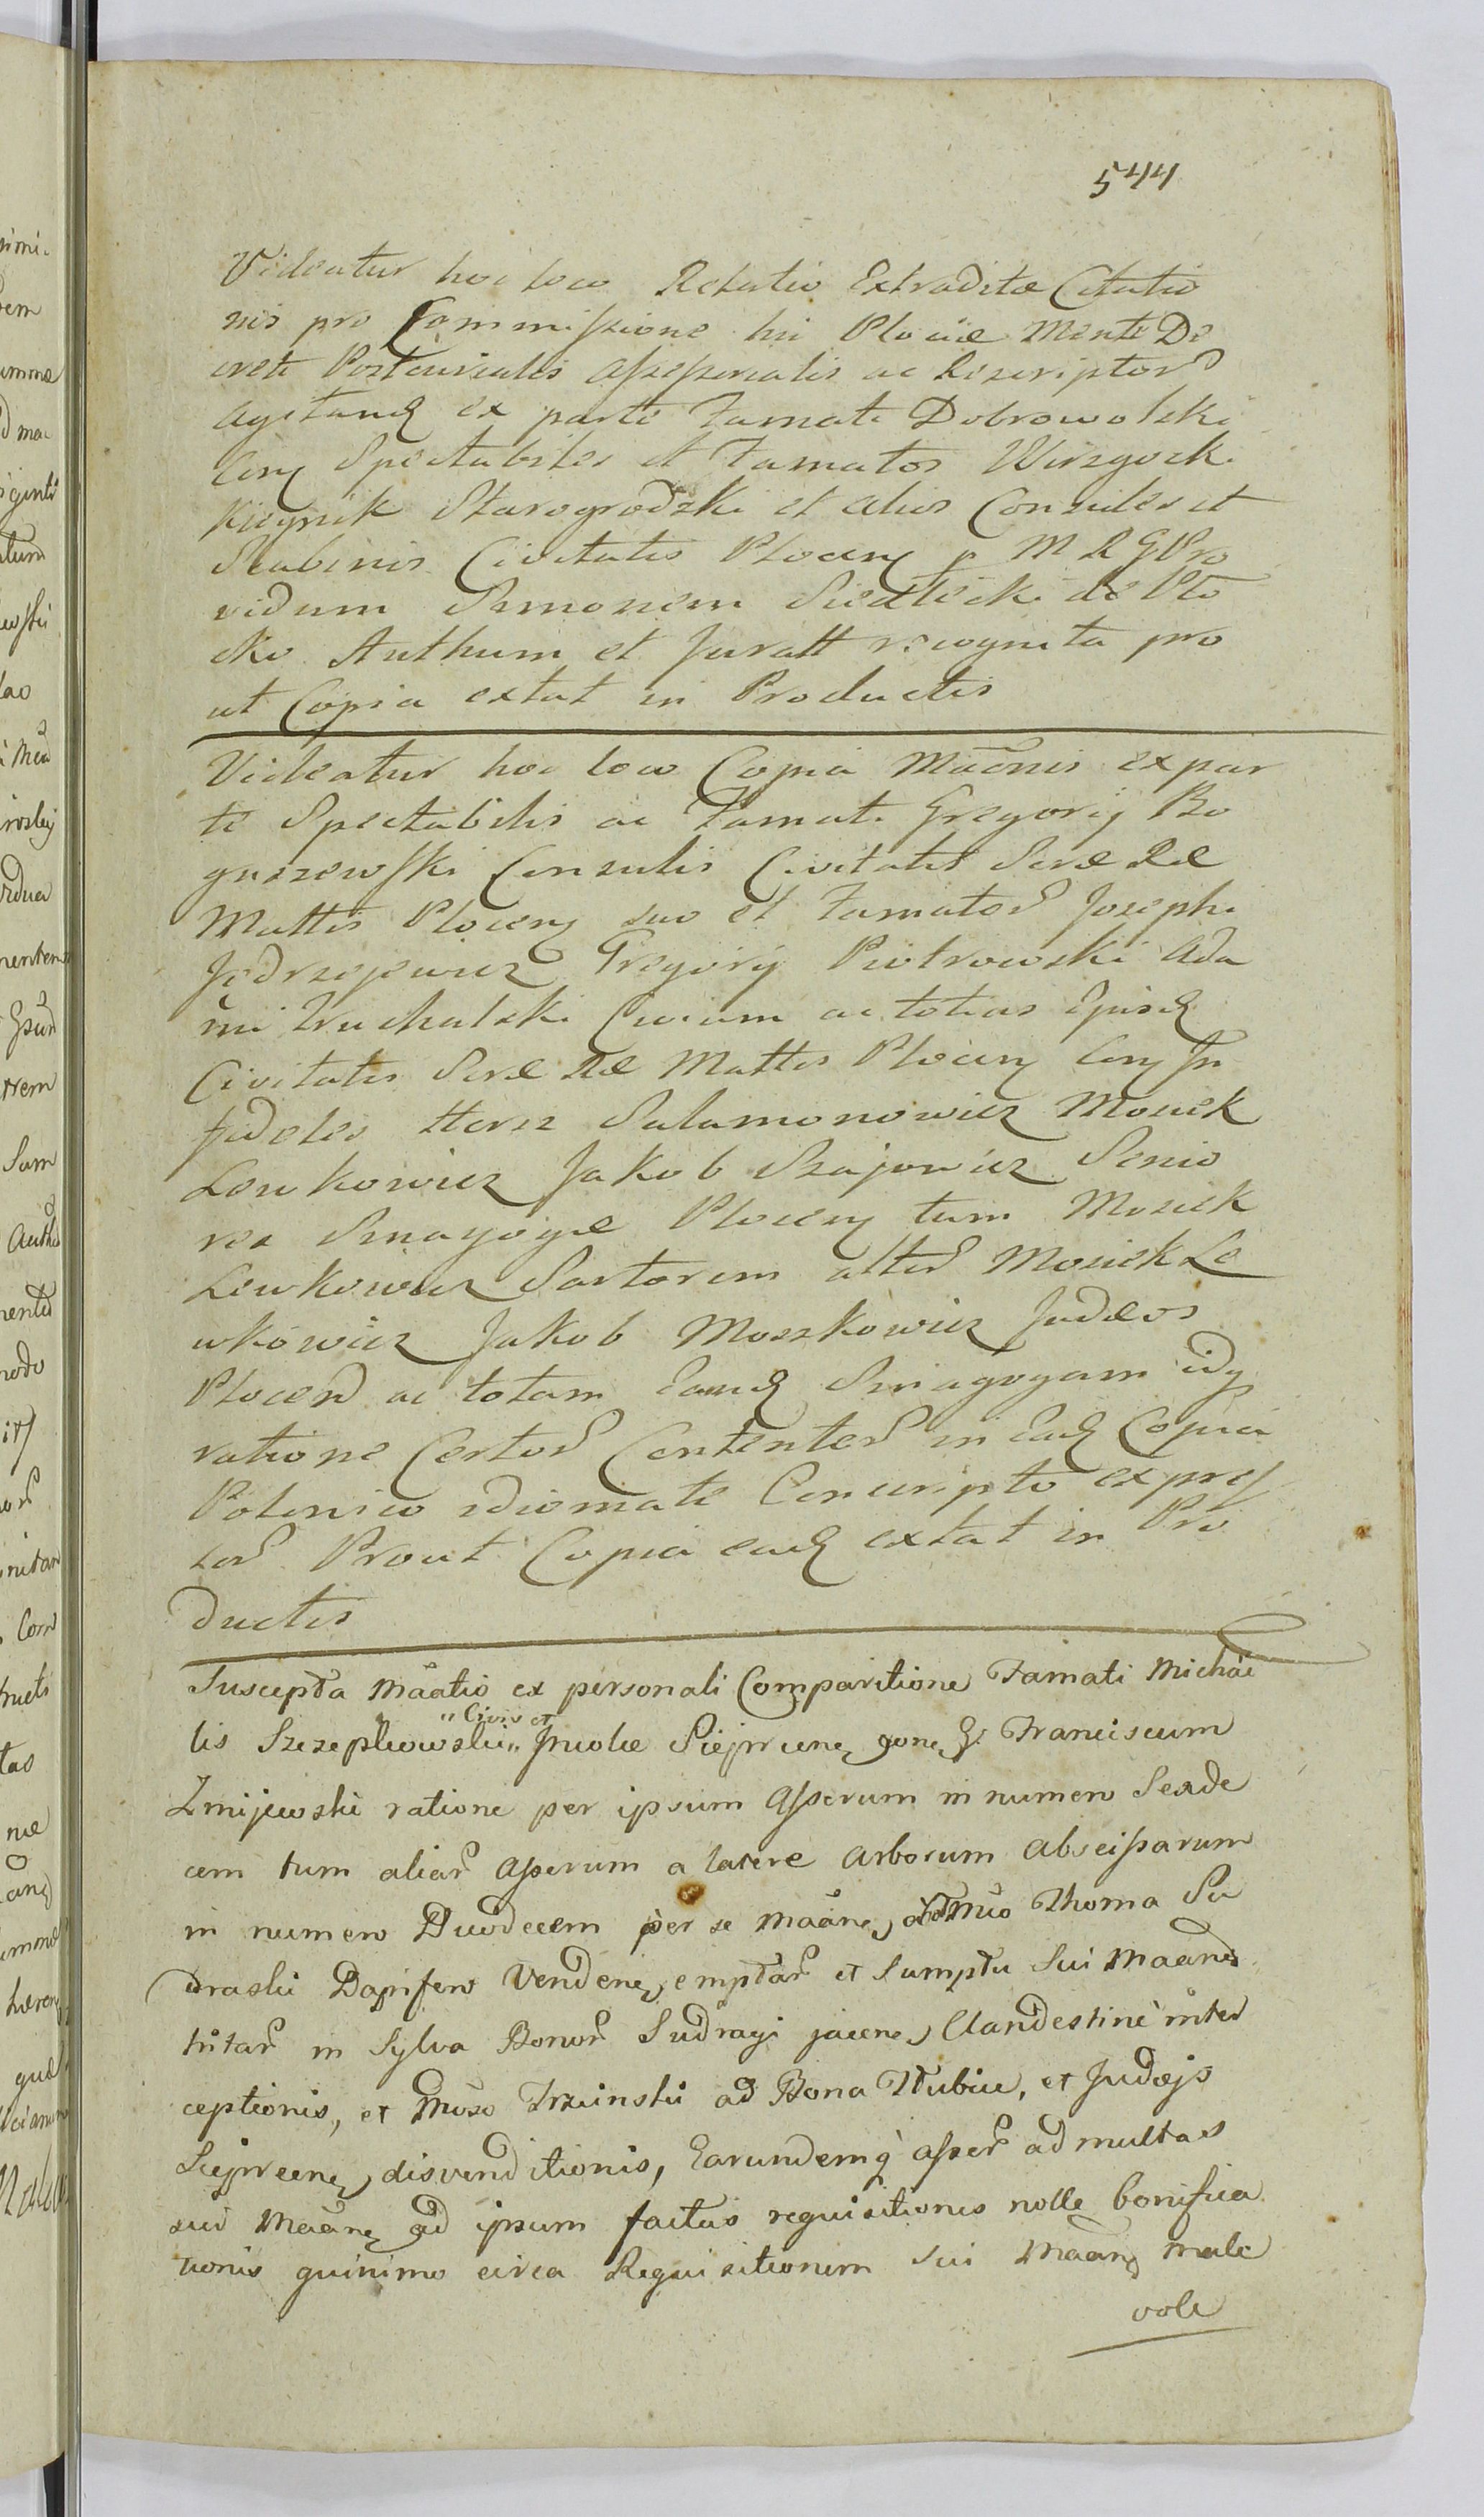 544
Videatur hoc loco Relatio Extraditæ Citatio
nis pro Commissione hic Plociæ Mente De
creti Postcurialis Assessorialis ac Rescriptor
agitand ex parte Famati Dobrowolski
Con Spectabiles et Famatos Wirzgocki
Kiegnik Starogrodzki et alios Consules et
Scabinos Civitatis Plocen p M R G Pro
vidum Simonem Siedlecki de Plo
cko Authum et Juratt recognita pro
ut Copia extat in Productis
Videatur hoc loco Copia Mãonis ex par
te Spectabilis ac Famati Gregorij Bo
guszewski Consulis Civitatis Sacræ Ræ
Mattis Plocen suo et Famator Josephi
Jędrzejewicz Gregorij Piotrowski Ada
mi Kuchalski Civium ac totius Ejusd
Civitatis Sacræ Ræ Mattis Plocen Con In
fideles Hersz Salamonowicz Mosiek
Lewkowicz Jakob Szajowicz Senio
res Sinagogæ Plocen tum Mosiek
Lewkowicz Sartorem alter Mosiek Le
wkowicz Jakob Moszkowicz Judæos
Plocen ac totam Eand Sinagogam id
ratione Certor Contentor in Ead Copia
Polonico idiomate Conscripto expres
sor Prout Copia ead extat in Pro
ductis
Suscepta Mããtio ex personali Comparitione Famati Michãe
lis Szczepkowski „Civis et„ Incolæ Sieprcen con G. Franciscum
Zmijewski ratione per ipsum Asserum in numero Sexde
cem tum aliar Asserum a latere Arborum Abscissarum
in numero Duodecem per se Mããn a Gnoso Thoma Su
draski Dapifero Venden emptar et Sumptu Sui Mããn
tritar in Sylva Bonor Sudragi jacen Clandestinè inter
ceptionis, et Gnoso Trzcinski ad Bona Wubiec, et Judæis
Sieprcen disvenditionis, Earundemq asser ad multas
sui Mããn ad ipsum factas requisitiones nolle bonifica
tionis quinimo circa Requisitionem sui Mããn male
vole